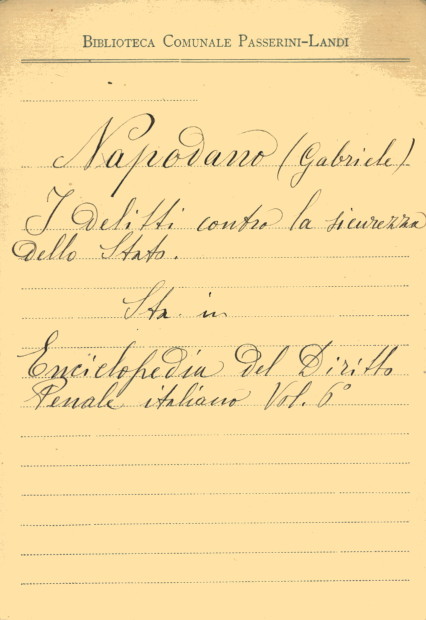 Biblioteca Comunale Passerini-Landi
Napodano (Gabriele)
I delitti contro la sicurezza
dello Stato.
Sta in
Enciclopedia del Diritto
Penale italiano Vol. 6°